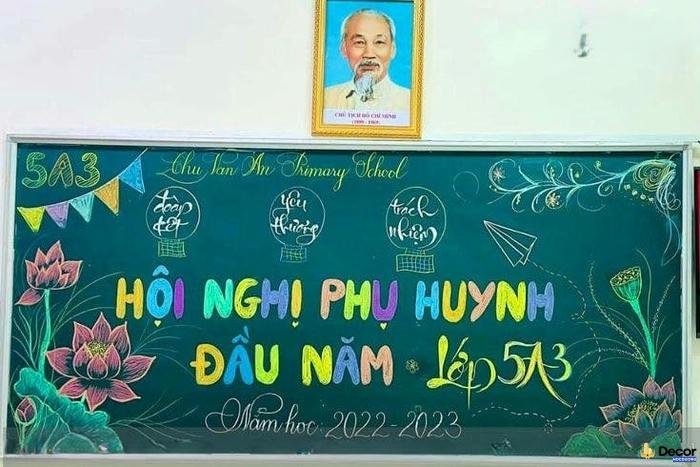 CHỦ TỊCH HỒ CHÍ MINH
(1890 - 1969)
5A3
Chu Van An Primary School
đoàn
kết
yêu
thương
trách
nhiệm
HỘI NGHỊ PHỤ HUYNH
ĐẦU NĂM - Lớp 5A3
Năm học: 2022-2023
Decor